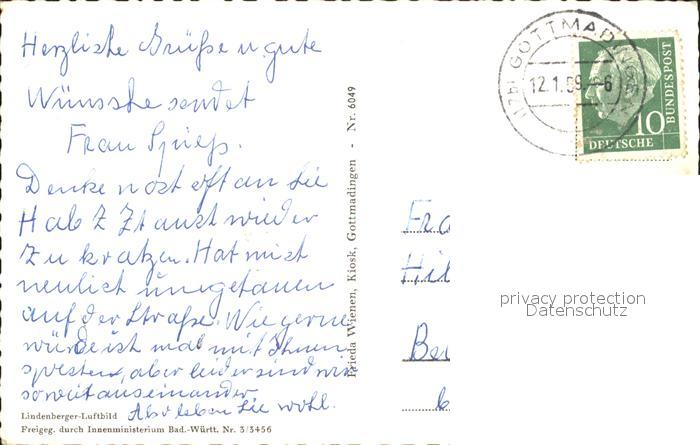 Herzliche Grüße u gute
Wünsche sendet
Frau Spieß.
Denke noch oft an Sie
Hab Z Zt auch wieder
zu kratzen. Hat mich
neulich umgehauen
auf der Straße. Wie gerne
würde ich mal mit Ihnen
sprechen, aber leider sind wir
so weit auseinander
Also leben Sie wohl.
Lindenberger-Luftbild
Freigeg. durch Innenministerium Bad.-Württ. Nr. 3/3456
Frieda Wienen, Kiosk, Gottmadingen - Nr. 6049
GOTTMADINGEN
12.1.59.-6
10
DEUTSCHE
BUNDESPOST
Fra
Hil
privacy protection
Datenschutz